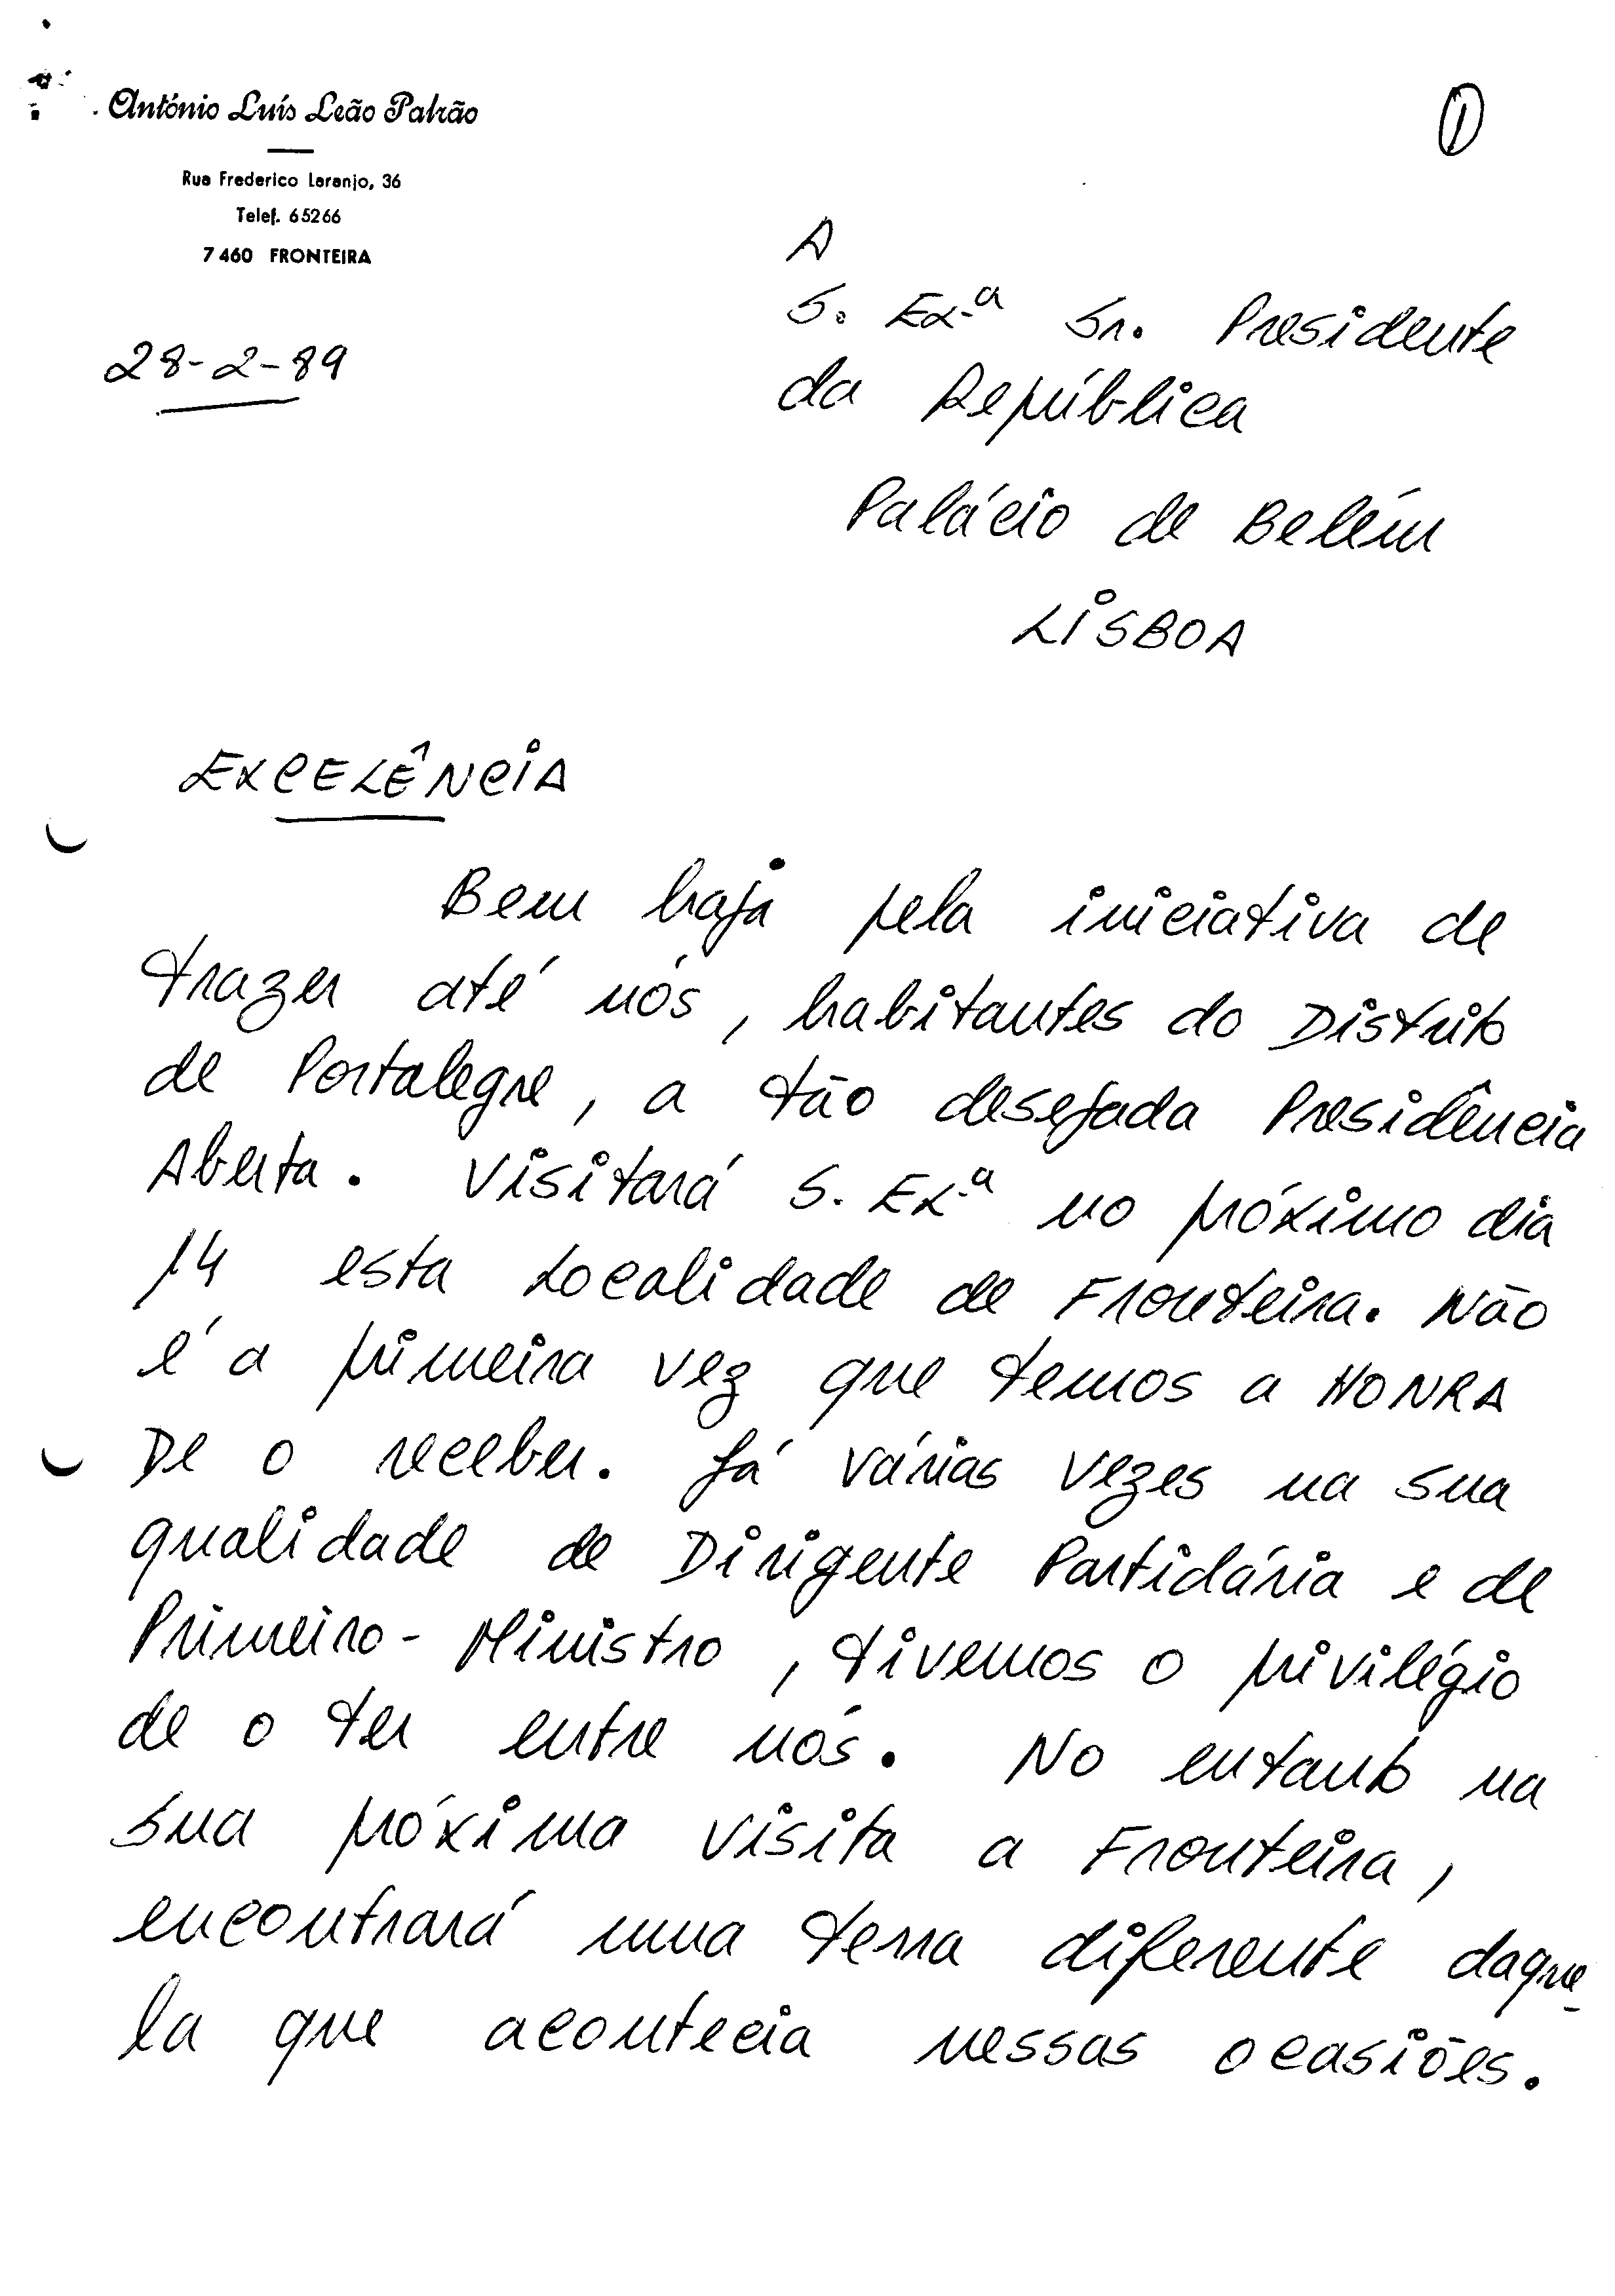 António Luís Leão Palrão
Rua Frederico Laranjo, 36
Telef. 65266
7460 FRONTEIRA
1
28-2-89
A
S. Ex.ª Sr. Presidente
da República
Palácio de Belém
LISBOA
EXCELÊNCIA
Bem haja pela iniciativa de
trazer até nós, habitantes do Distrito
de Portalegre, a tão desejada Presidência
Aberta. Visitará S. Ex.ª no próximo dia
14 esta Localidade de Fronteira. Não
é a primeira vez que temos a HONRA
De o receber. Já várias vezes na sua
qualidade de Dirigente Partidária e de
Primeiro-Ministro, tivemos o privilégio
de o ter entre nós. No entanto na
sua próxima visita a Fronteira,
encontrará uma terra diferente daque-
la que acontecia nessas ocasiões.